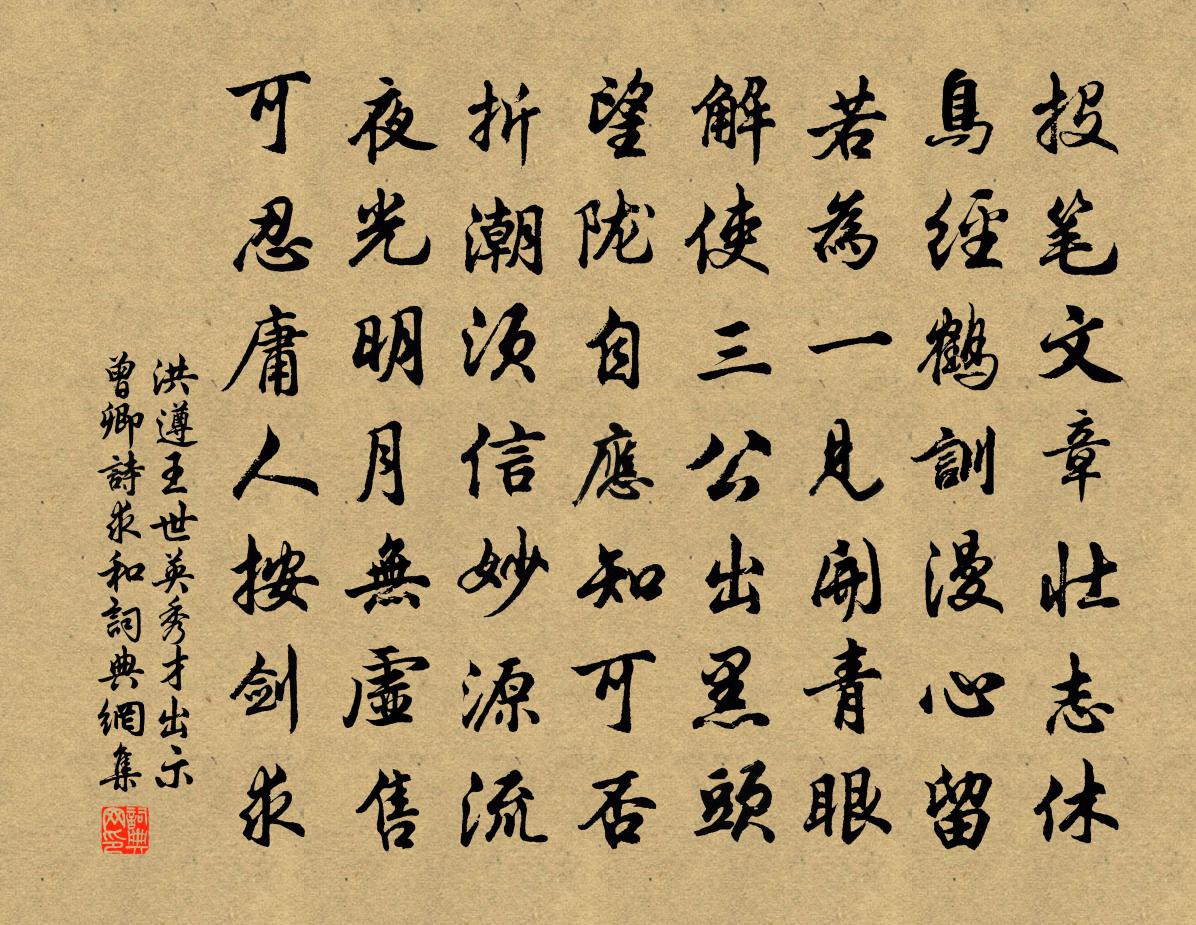 投笔文章壮志休
鳧經鶴訓漫心留
若為一見開青眼
解使三公出黑頭
望陇自應知可否
折潮須信妙源流
夜光明月無虛售
可忍庸人按劍求
洪遵王世英秀才出示
曾卿詩求和詞典網集
詞典網印